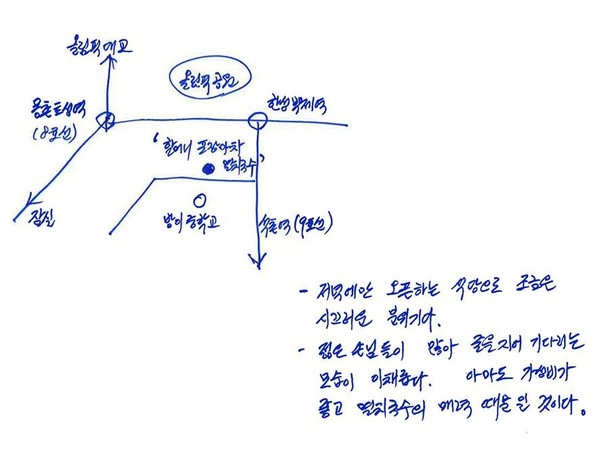 올림픽대교
올림픽공원
몽촌토성역
(8호선)
한성백제역
'할머니 포장마차
멸치국수'
잠실
방이중학교
석촌역 (9호선)
- 저녁에만 오픈하는 식당으로 조금은
시끄러운 분위기다.
- 젊은 손님들이 많아 줄을지어 기다리는
모습이 이채롭다. 아마도 가성비가
좋고 멸치국수의 매력 때문일 것이다.